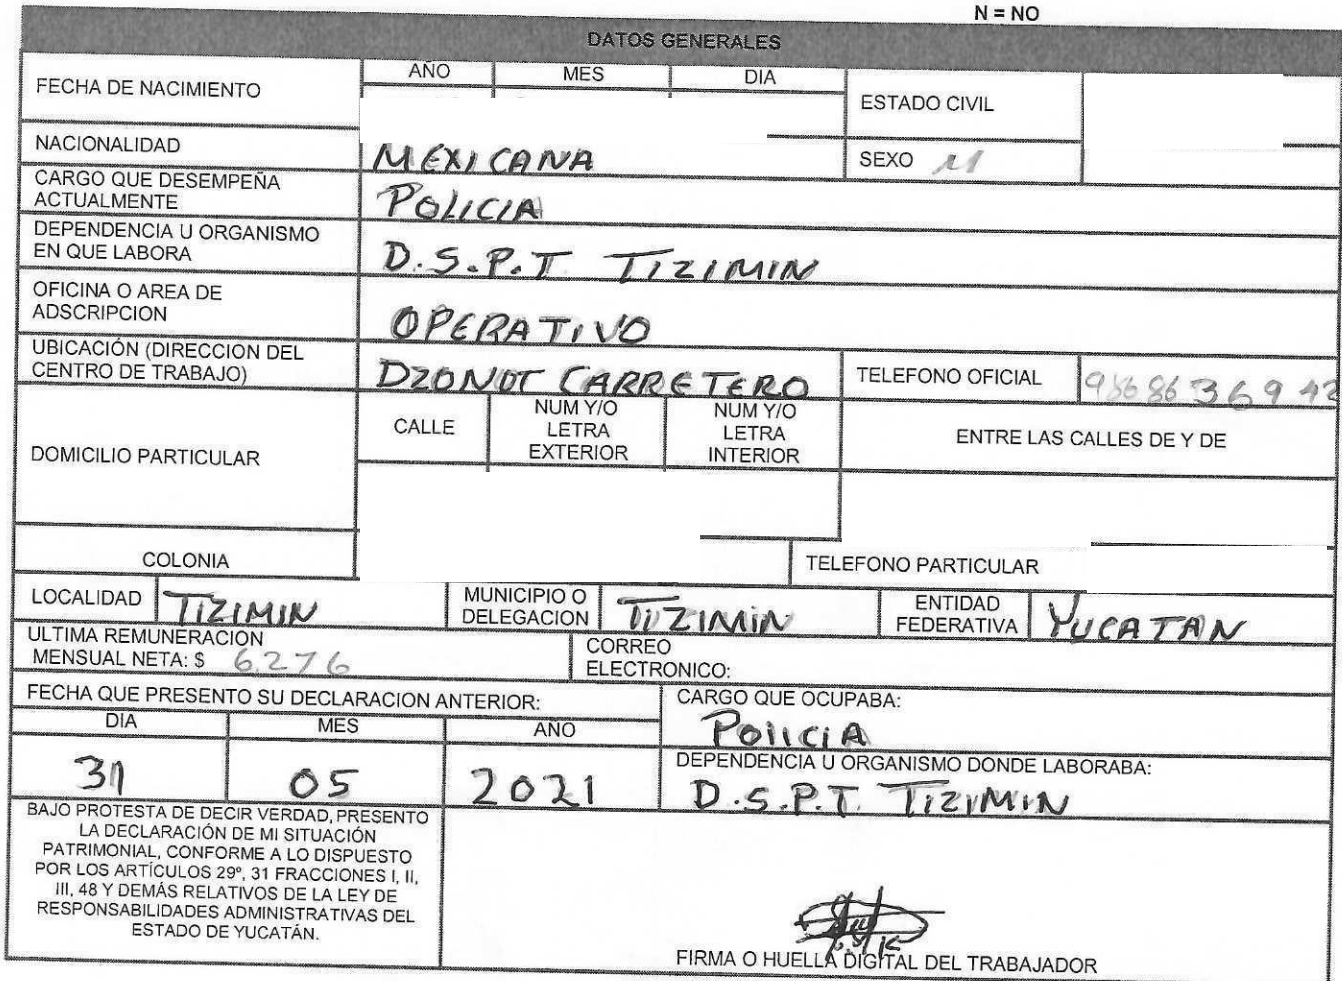 N = NO
DATOS GENERALES
FECHA DE NACIMIENTO
AÑO MES DIA
ESTADO CIVIL
NACIONALIDAD MEXICANA
SEXO M
CARGO QUE DESEMPEÑA
ACTUALMENTE POLICIA
DEPENDENCIA U ORGANISMO
EN QUE LABORA D.S.P.T TIZIMIN
OFICINA O AREA DE
ADSCRIPCION OPERATIVO
UBICACIÓN (DIRECCION DEL
CENTRO DE TRABAJO) DZONOT CARRETERO
TELEFONO OFICIAL 9868636942
DOMICILIO PARTICULAR
CALLE
NUM Y/O
LETRA
EXTERIOR
NUM Y/O
LETRA
INTERIOR
ENTRE LAS CALLES DE Y DE
COLONIA
TELEFONO PARTICULAR
LOCALIDAD TIZIMIN
MUNICIPIO O
DELEGACION TIZIMIN
ENTIDAD
FEDERATIVA YUCATAN
ULTIMA REMUNERACION
MENSUAL NETA: $ 6,276
CORREO
ELECTRONICO:
FECHA QUE PRESENTO SU DECLARACION ANTERIOR:
DIA MES AÑO
31 05 2021
CARGO QUE OCUPABA:
POLICIA
DEPENDENCIA U ORGANISMO DONDE LABORABA:
D.S.P.T. TIZIMIN
BAJO PROTESTA DE DECIR VERDAD, PRESENTO
LA DECLARACIÓN DE MI SITUACIÓN
PATRIMONIAL, CONFORME A LO DISPUESTO
POR LOS ARTÍCULOS 29º, 31 FRACCIONES I, II,
III, 48 Y DEMÁS RELATIVOS DE LA LEY DE
RESPONSABILIDADES ADMINISTRATIVAS DEL
ESTADO DE YUCATÁN.
FIRMA O HUELLA DIGITAL DEL TRABAJADOR